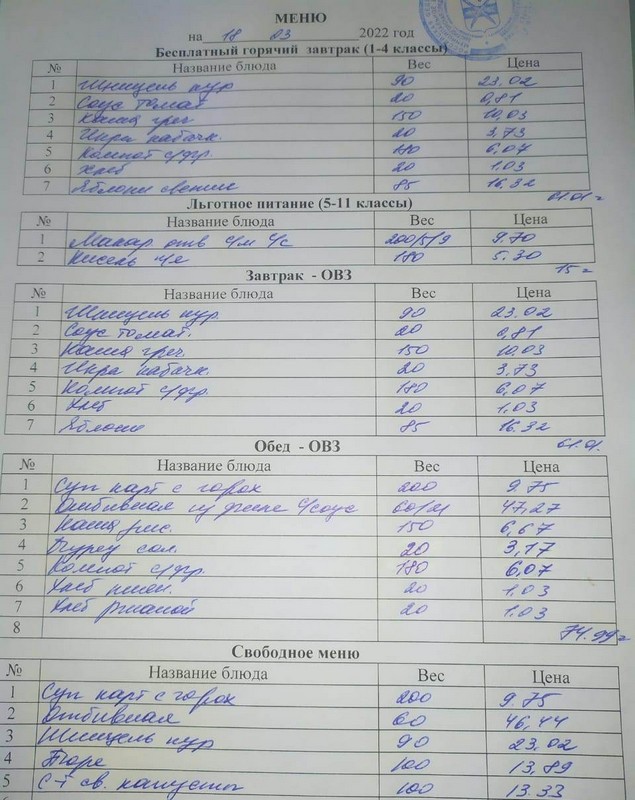 МЕНЮ
на 18 03 2022 год
Бесплатный горячий завтрак (1-4 классы)
№ Название блюда Вес Цена
1 Шницель кур 90 23.02
2 Соус томат 20 0,81
3 Каша греч 150 10,03
4 Икра кабачк. 20 3,73
5 Компот с/фр. 180 6,07
6 Хлеб 20 1.03
7 Яблоки свежие 85 16,32
61.01 г
Льготное питание (5-11 классы)
№ Название блюда Вес Цена
1 Макар отв с/м с/с 200/5/9 9.70
2 Кисель 180 5.30
15 г
Завтрак - ОВЗ
№ Название блюда Вес Цена
1 Шницель кур. 90 23.02
2 Соус томат. 20 0,81
3 Каша греч. 150 10.03
4 Икра кабачк. 20 3,73
5 Компот с/фр. 180 6,07
6 Хлеб 20 1,03
7 Яблоки 85 16.32
61.01.
Обед - ОВЗ
№ Название блюда Вес Цена
1 Суп карт с горох 200 9.75
2 Отбивная из филе с/соус 60/21 47,27
3 Каша рис. 150 6,67
4 Огурец сол. 20 3,17
5 Компот с/фр. 180 6,07
6 Хлеб пшен. 20 1,03
7 Хлеб ржаной 20 1.03
8
74.99 г
Свободное меню
№ Название блюда Вес Цена
1 Суп карт с горох 200 9.75
2 Отбивная 60 46,44
3 Шницель кур 90 23.02
4 Пюре 100 13,89
5 С-т св. капусты 100 13.33